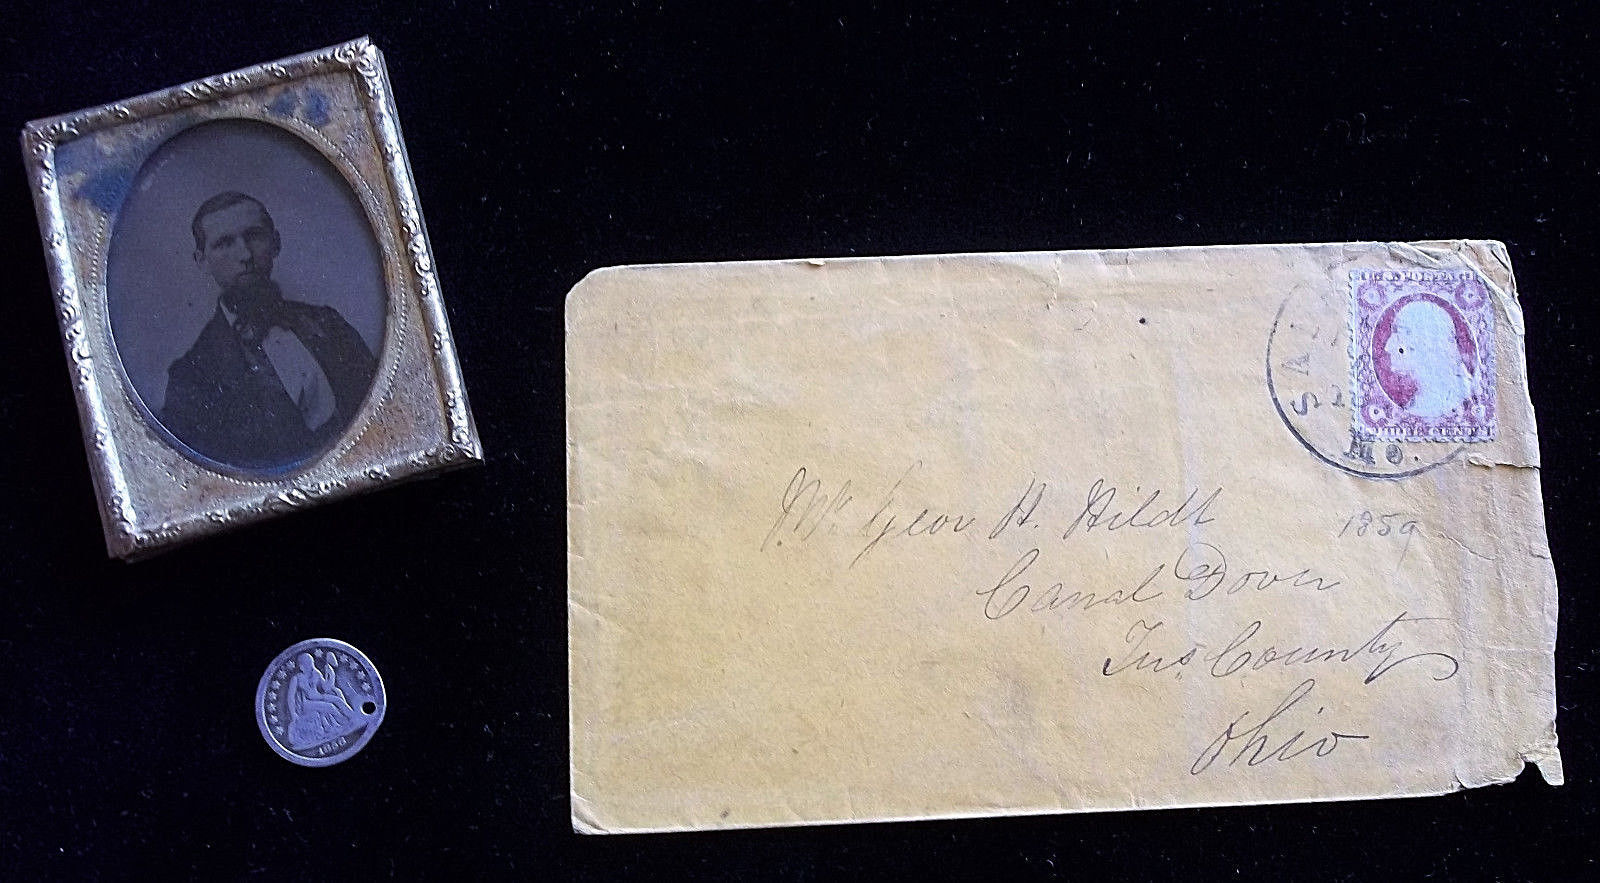 U.S. POSTAGE
THREE CENTS
SAL
Mo.
Mr Geor H. Hildt
1859
Canal Dover
Tus. County
Ohio
1858